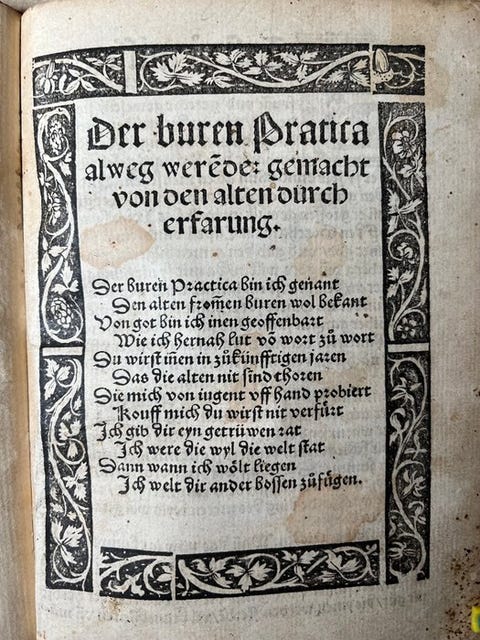 Der buren Pratica
alweg werẽder gemacht
von den alten durch
erfarung.
Der buren Practica bin ich genant
Den alten from̃en buren wol bekant
Von got bin ich inen geoffenbart
Wie ich hernah lut võ wort zů wort
Du wirst iñen in zůkünfftigen jaren
Das die alten nit sind thoren
Die mich von iugent vff hand probiert
Kouff mich du wirst nit verfürt
Ich gib dir eyn getrüwen rat
Ich were die wyl die welt stat
Dann wann ich wölt liegen
Ich welt dir ander bossen zůfügen.